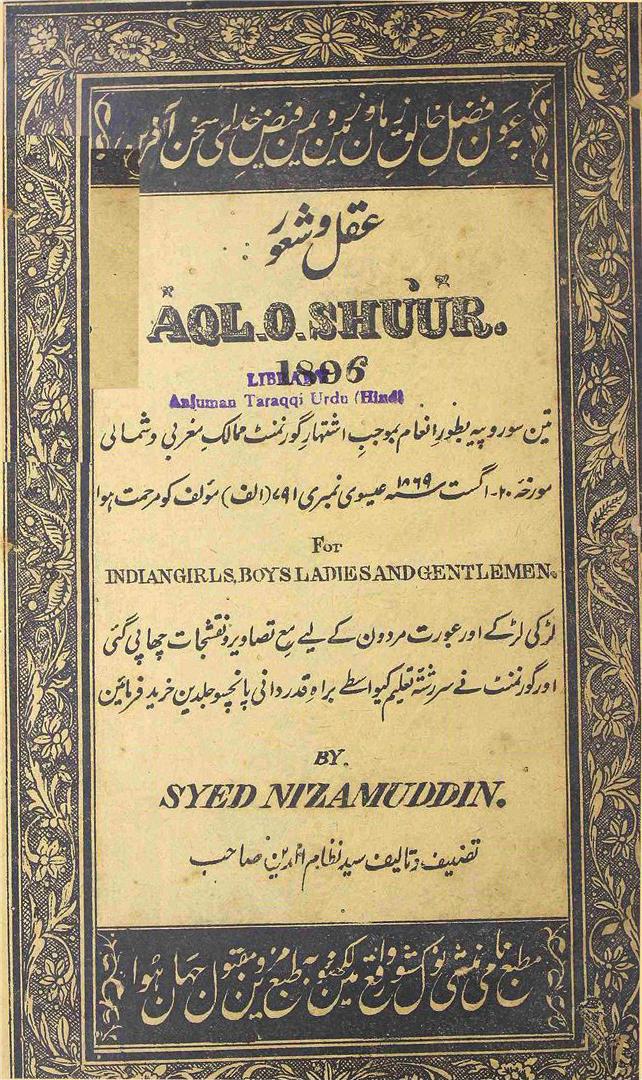 بہ عون فضل خالق زمان و زمین و یمن فیض خدای سخن آفرین
عقل و شعور
AQL.O.SHUUR.
1896
LIBRARY
Anjuman Taraqqi Urdu (Hind)
تین سو روپیہ بطور انعام بموجب اشتہار گورنمنٹ ممالک مغربی و شمالی
مورخہ ۲۰- اگست سنہ ۱۸۶۹ عیسوی نمبری ۷۹۱ (الف) مؤلف کو مرحمت ہوا
FOR
INDIAN GIRLS, BOYS LADIES AND GENTLEMEN.
لڑکی لڑکے اور عورت مردون کے لیے مع تصاویر و نقشجات چھاپی گئی
اور گورنمنٹ نے سررشتۂ تعلیم کیواسطے براہ قدردانی پانچسو جلدین خرید فرمائین
BY.
SYED NIZAMUDDIN.
تصنیف و تالیف سید نظام الدین صاحب
مطبع نامی منشی نولکشور واقع لکھنؤ مین بہ طبع مزین و مقبول جہان ہوا